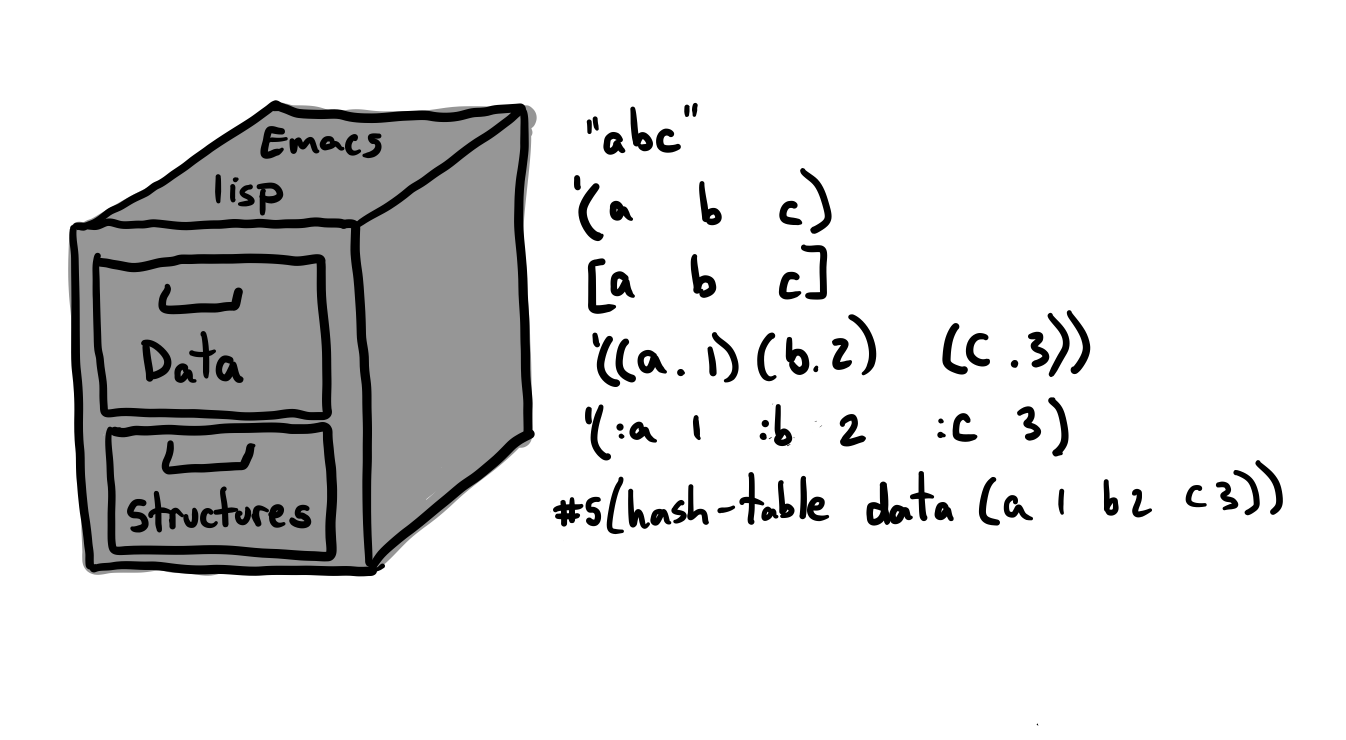 Emacs
lisp
Data
Structures
"abc"
'(a b c)
[a b c]
'((a . 1) (b . 2) (c . 3))
'(:a 1 :b 2 :c 3)
#s(hash-table data (a 1 b 2 c 3))